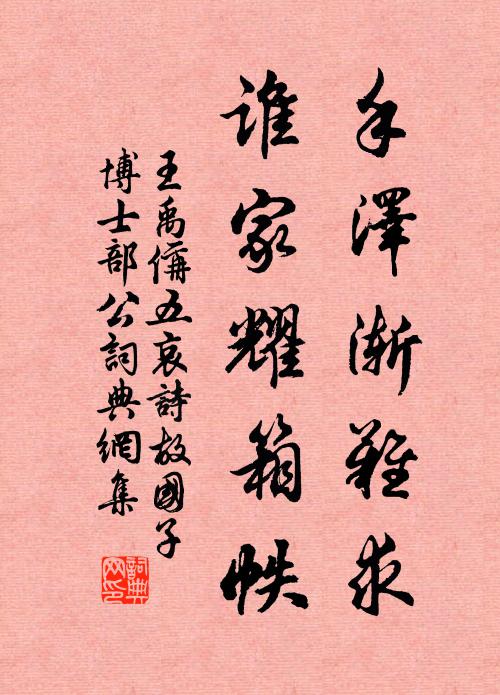 手澤漸難求
誰家耀箱帙
王禹偁五哀詩故國子
博士部公詞典網集
詞典
网印